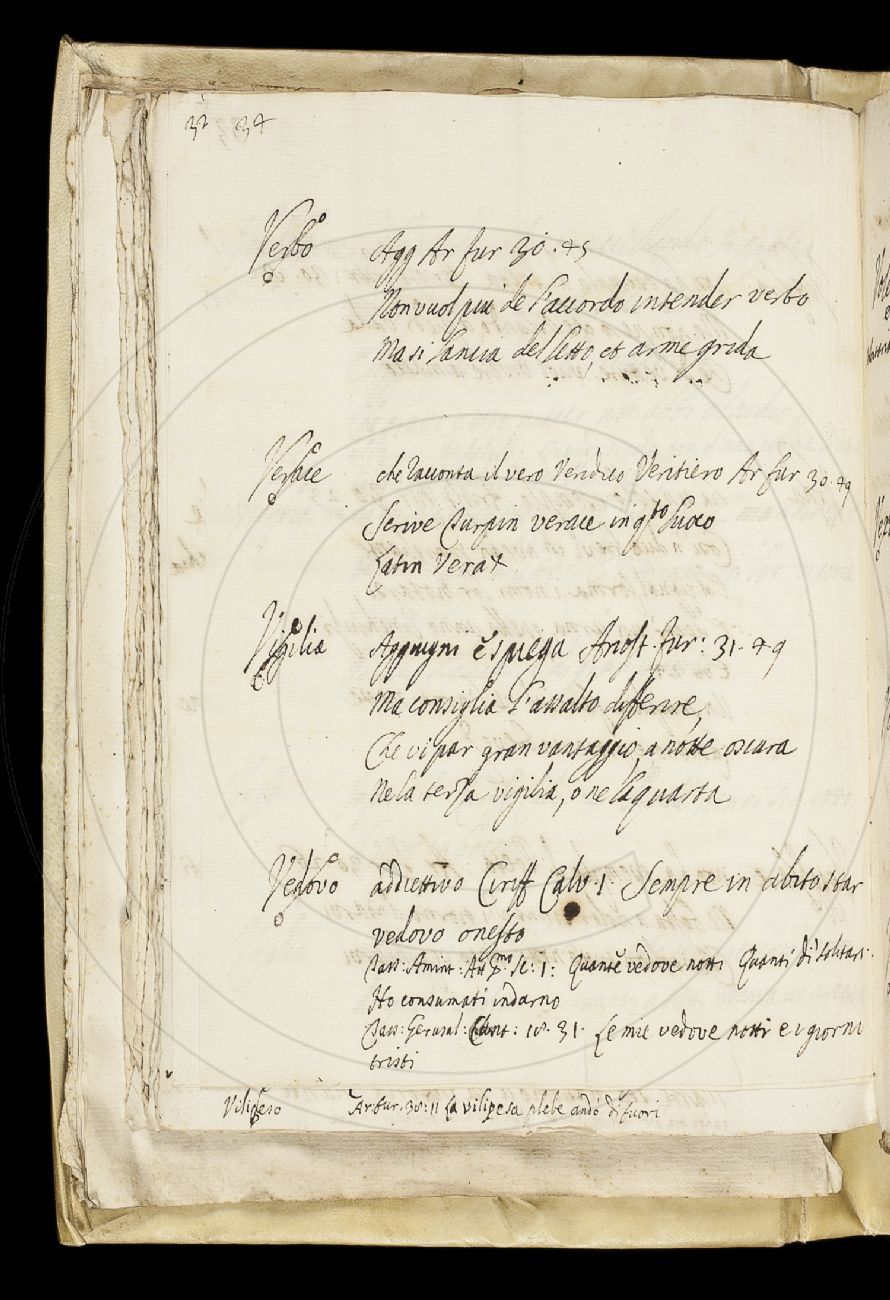 32 34
Verbo Agg Ar fur 30. 45
Non vuol piu de l'accordo intender verbo
Ma si lancia del letto, et arme grida
Verace che racconta il vero Veridico Veritiero Ar fur 30. 49
Scrive Turpin verace in qsto luoco
Latin Verax
Vigilia Aggiugni e spiega Ariost. fur: 31. 49
Ma consiglia l'assalto differire,
Che vi par gran vantaggio, a notte oscura
Ne la terza vigilia, o ne la quarta
Vedovo addiettivo Ciriff Calv. 1. Sempre in abito star
vedovo onesto
Tass: Amint: Att. Pmo Sc: 1: Quante vedove notti Quanti dì solitari
Ho consumati indarno
Tass: Gerusal: Cant: 18. 31. Le mie vedove notti e i giorni
tristi
Vilipeso Ar fur. 38: 11 La vilipesa plebe andò di fuori